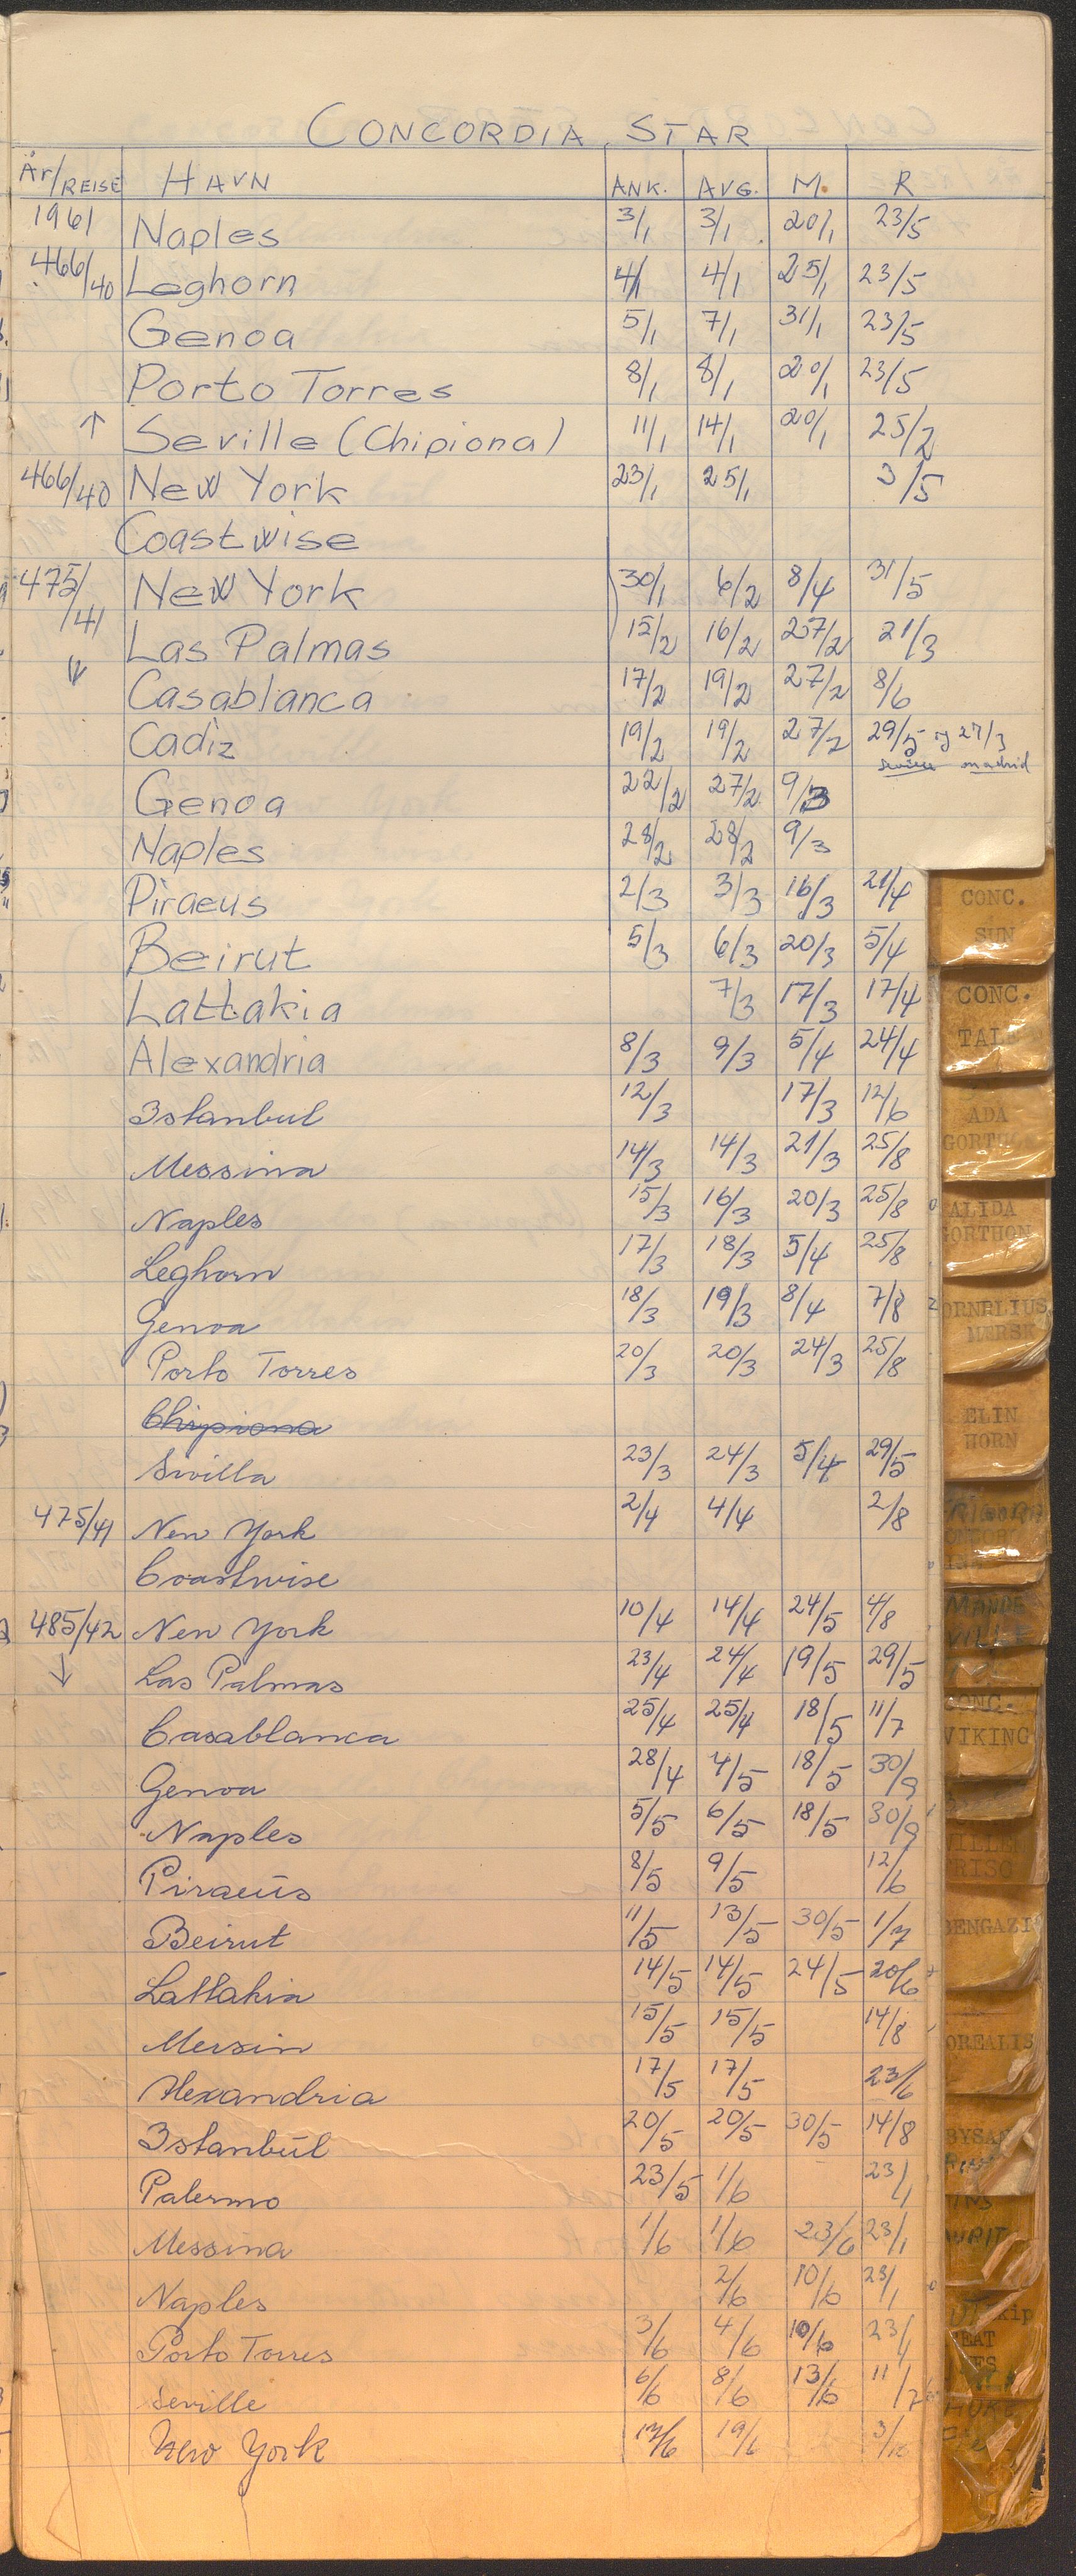 CONCORDIA STAR
År/REISE HAVN ANK. AVG. M. R
1961 Naples 3/1 3/1 20/1 23/5
466/40 Leghorn 4/1 4/1 25/1 23/5
Genoa 5/1 7/1 31/1 23/5
Porto Torres 8/1 8/1 20/1 23/5
↑ Seville (Chipiona) 11/1 14/1 20/1 25/2
466/40 New York 23/1 25/1 3/5
Coastwise
475/41 New York 30/1 6/2 8/4 31/5
Las Palmas 15/2 16/2 27/2 21/3
↓ Casablanca 17/2 19/2 27/2 8/6
Cadiz 19/2 19/2 27/2 29/5 og 27/3
madrid
Genoa 22/2 27/2 9/3
Naples 28/2 28/2 9/3
Piraeus 2/3 3/3 16/3 21/4
Beirut 5/3 6/3 20/3 5/4
Lattakia 7/3 17/3 17/4
Alexandria 8/3 9/3 5/4 24/4
Istanbul 12/3 17/3 12/6
Messina 14/3 14/3 21/3 25/8
Naples 15/3 16/3 20/3 25/8
Leghorn 17/3 18/3 5/4 25/8
Genoa 18/3 19/3 8/4 7/8
Porto Torres 20/3 20/3 24/3 25/8
Chipiona
Sivilla 23/3 24/3 5/4 29/5
475/41 New York 2/4 4/4 2/8
Coastwise
485/42 New York 10/4 14/4 24/5 4/8
↓ Las Palmas 23/4 24/4 19/5 29/5
Casablanca 25/4 25/4 18/5 11/7
Genoa 28/4 4/5 18/5 30/9
Naples 5/5 6/5 18/5 30/9
Piraeus 8/5 9/5 12/6
Beirut 11/5 13/5 30/5 1/7
Lattakia 14/5 14/5 24/5 20/6
Mersin 15/5 15/5 14/8
Alexandria 17/5 17/5 23/6
Istanbul 20/5 20/5 30/5 14/8
Palermo 23/5 1/6 23/1
Messina 1/6 1/6 23/6 23/1
Naples 2/6 10/6 23/1
Porto Torres 3/6 4/6 10/6 23/1
Seville 6/6 8/6 13/6 11/7
New York 19/6
CONC.
SUN
CONC.
TALE
ADA
GORTHON
ALIDA
GORTHON
ORNELIUS
MERSK
ELIN
HORN
MANDE
VILLE
CONC.
VIKING
BENGAZI
OREALIS